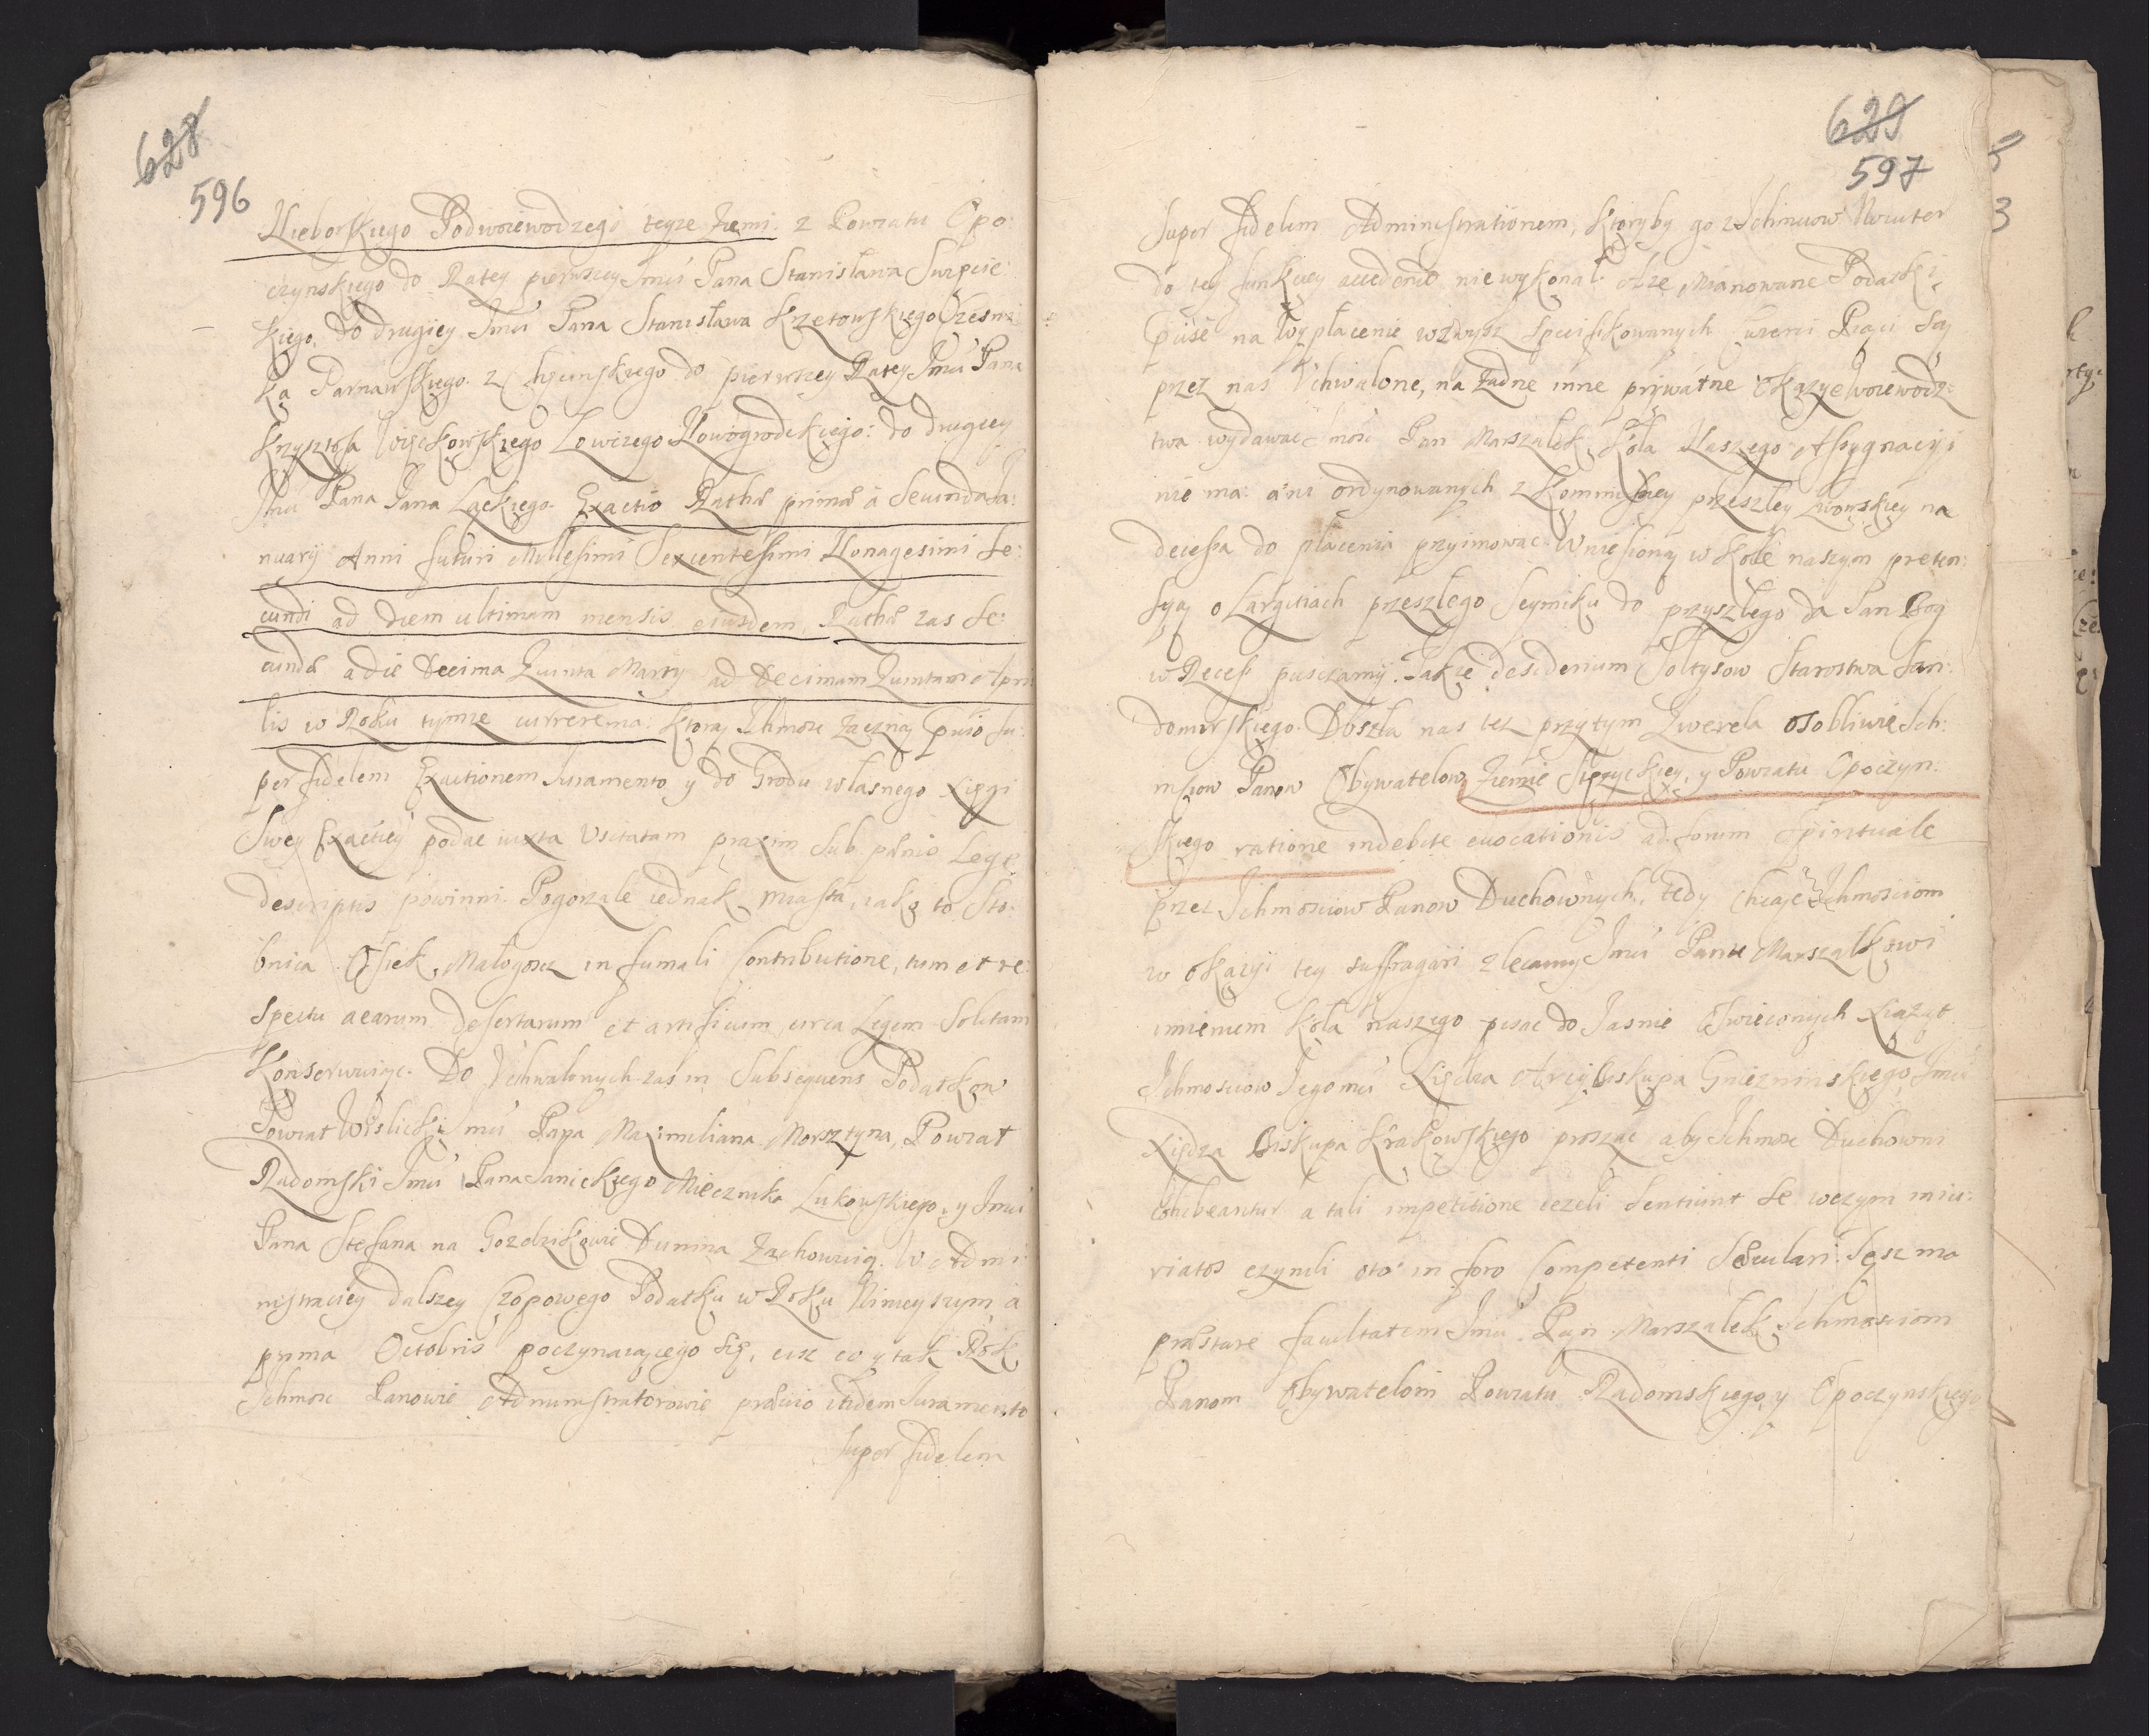 628
596
Nieborskiego Podwoiewodzego teyze Ziemi. z Powiatu Opo:
czynskiego do Ratey pierwszey Jmci Pana Stanisława
kiego, do drugiey Jmci Pana Stanisława Krzetowskiego Czesni:
ka Parnawskiego. z Chęcinskiego do pierwszey Ratey Jmci Pana
Krzysztofa Łowczego Nowogrodckiego: do drugiey
Jmci Pana Jana Ląckiego. Exactio Rathæ primæ à Secunda Ja:
nuarij Anni futuri Millesimi Sexcentesimi Nonagesimi Se:
cundi ad diem ultimam mensis eiusdem, Rathæ zas Se:
cundæ a die Decima Quinta Marty ad Decimam Quintam Apri
lis w Roku tymze currere ma: ktorą Ichmosc zaczną præuio Su:
per fidelem Exactionem Juramento y do Grodu własnego Xięgi
Swey Exactiey podac iuxta Usitatam praxim sub pænis Lege
descriptis powinni. Pogorzałe iednak miasta, iako to Sto:
bnica Osiek, Małogoszcz in fumali Contributione, tum et re:
spectu arearum desertarum et artificum circa Legem Solitam
Konserwuięc. Do Uchwalonych zas in Subsequens Podatkow
Powiat Wislicki Jmci Pana Maximiliana Morsztyna, Powiat
Radomski Jmci Pana Janickiego Miecznika Lukowskiego, y Jmci
Pana Stefana na Gozdzikowie Dunina Zachowuią. W Admi
nistraciey dalszey Czopowego Podatku w Roku Ninieyszym à
prima Octobris poczynaiącego się, isz co y tak Rok
Ichmosc Panowie Administratorowie præuio itidem Juramento
super fidelem
629
597
super fidelem Administrationem, ktoryby go z Ichmciow Nouiter
do tey funkciey accedendo nie wykonał. A ze mianowane Podatki
præcise na Wypłacenie wzwysz specifikowanych trzeci Raci są
przez nas Uchwalone, na zadne inne prywatne Okazye Woiewodz:
twa wydawac Jmosc Pan Marszałek Koła Naszego Assygnacyi
nie ma: ani ordynowanych z Kommissiey przeszłey Lwowskiey na
decessa do płacenia przyimowac. Wniesioną w Kole naszym preten:
syą o Largitiach przeszłego Seymiku do przyszłego da Pan Bog
w Recess puszczamy. Także desiderium Sołtysow Starostwa San:
domirskiego. Doszła nas tez przytym Qwerela osobliwie Ich:
msciow Panow Obywatelow Ziemie Stężyckiey, y Powiatu Opoczyn:
skiego ratione indebite euocationis ad forum Spirituale
przez Ichmosciow Panow Duchownych, tedy chcąc Ichmosciom
w okazyi tey suffragari zlecamy Jmci Panu Marszałkowi
imieniem Koła naszego pisac do Jasnie Oswieconych Xiążąt
Ichmosciow Jegomci Xiędza Arcybiskupa Gnieznienskiego, Jmci
Xiędza Biskupa Krakowskiego prosząc aby Ichmosc Duchowni
cohibeantur a tali impetitione iezeli sentiunt se w czym iniu:
riatos czynili oto in foro Competenti Sæculari.
præstare facultatem Jmci Pan Marszałek Ichmosciom
Panom Obywatelom Powiatu Radomskiego, y Opoczynskiego